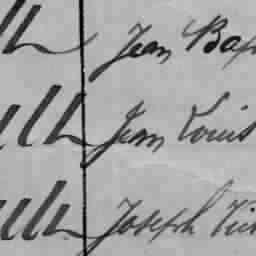 Jean Bap
Jean Louis
Joseph Vic